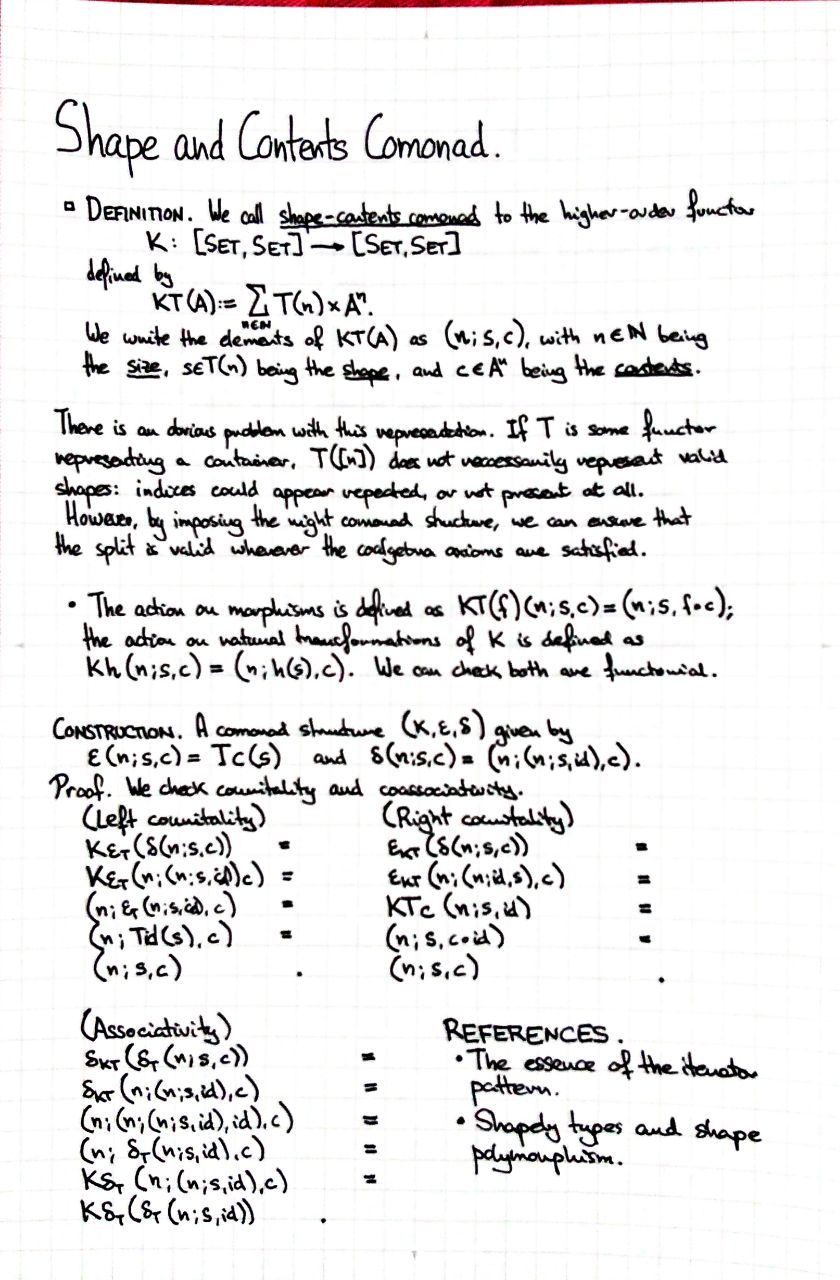 Shape and Contents Comonad.
▫ DEFINITION. We call shape-contents comonad to the higher-order functor
K: [SET, SET] → [SET, SET]
defined by
KT(A) := ∑ T(n) × Aⁿ.
n∈ℕ
We write the elements of KT(A) as (n; s, c), with n∈ℕ being
the size, s∈T(n) being the shape, and c∈Aⁿ being the contents.
There is an obvious problem with this representation. If T is some functor
representing a container, T([n]) does not neccessarily represent valid
shapes: indices could appear repeated, or not present at all.
However, by imposing the right comonad structure, we can ensure that
the split is valid whenever the coalgebra axioms are satisfied.
• The action on morphisms is defined as KT(f)(n; s, c) = (n; s, f∘c);
the action on natural transformations of K is defined as
Kh(n; s, c) = (n; h(s), c). We can check both are functorial.
CONSTRUCTION. A comonad structure (K, ε, δ) given by
ε(n; s, c) = Tc(s) and δ(n; s, c) = (n; (n; s, id), c).
Proof. We check counitality and coassociativity.
(Left counitality) (Right counitality)
Kε_T(δ(n; s, c)) = ε_KT(δ(n; s, c)) =
Kε_T(n; (n; s, id), c) = ε_KT(n; (n; id, s), c) =
(n; ε_T(n; s, id), c) = KTc(n; s, id) =
(n; Tid(s), c) = (n; s, c∘id) =
(n; s, c) . (n; s, c) .
(Associativity)
δ_KT(δ_T(n; s, c)) =
δ_KT(n; (n; s, id), c) =
(n; (n; (n; s, id), id), c) =
(n; δ_T(n; s, id), c) =
Kδ_T(n; (n; s, id), c) =
Kδ_T(δ_T(n; s, id)) .
REFERENCES.
• The essence of the iterator
pattern.
• Shapely types and shape
polymorphism.